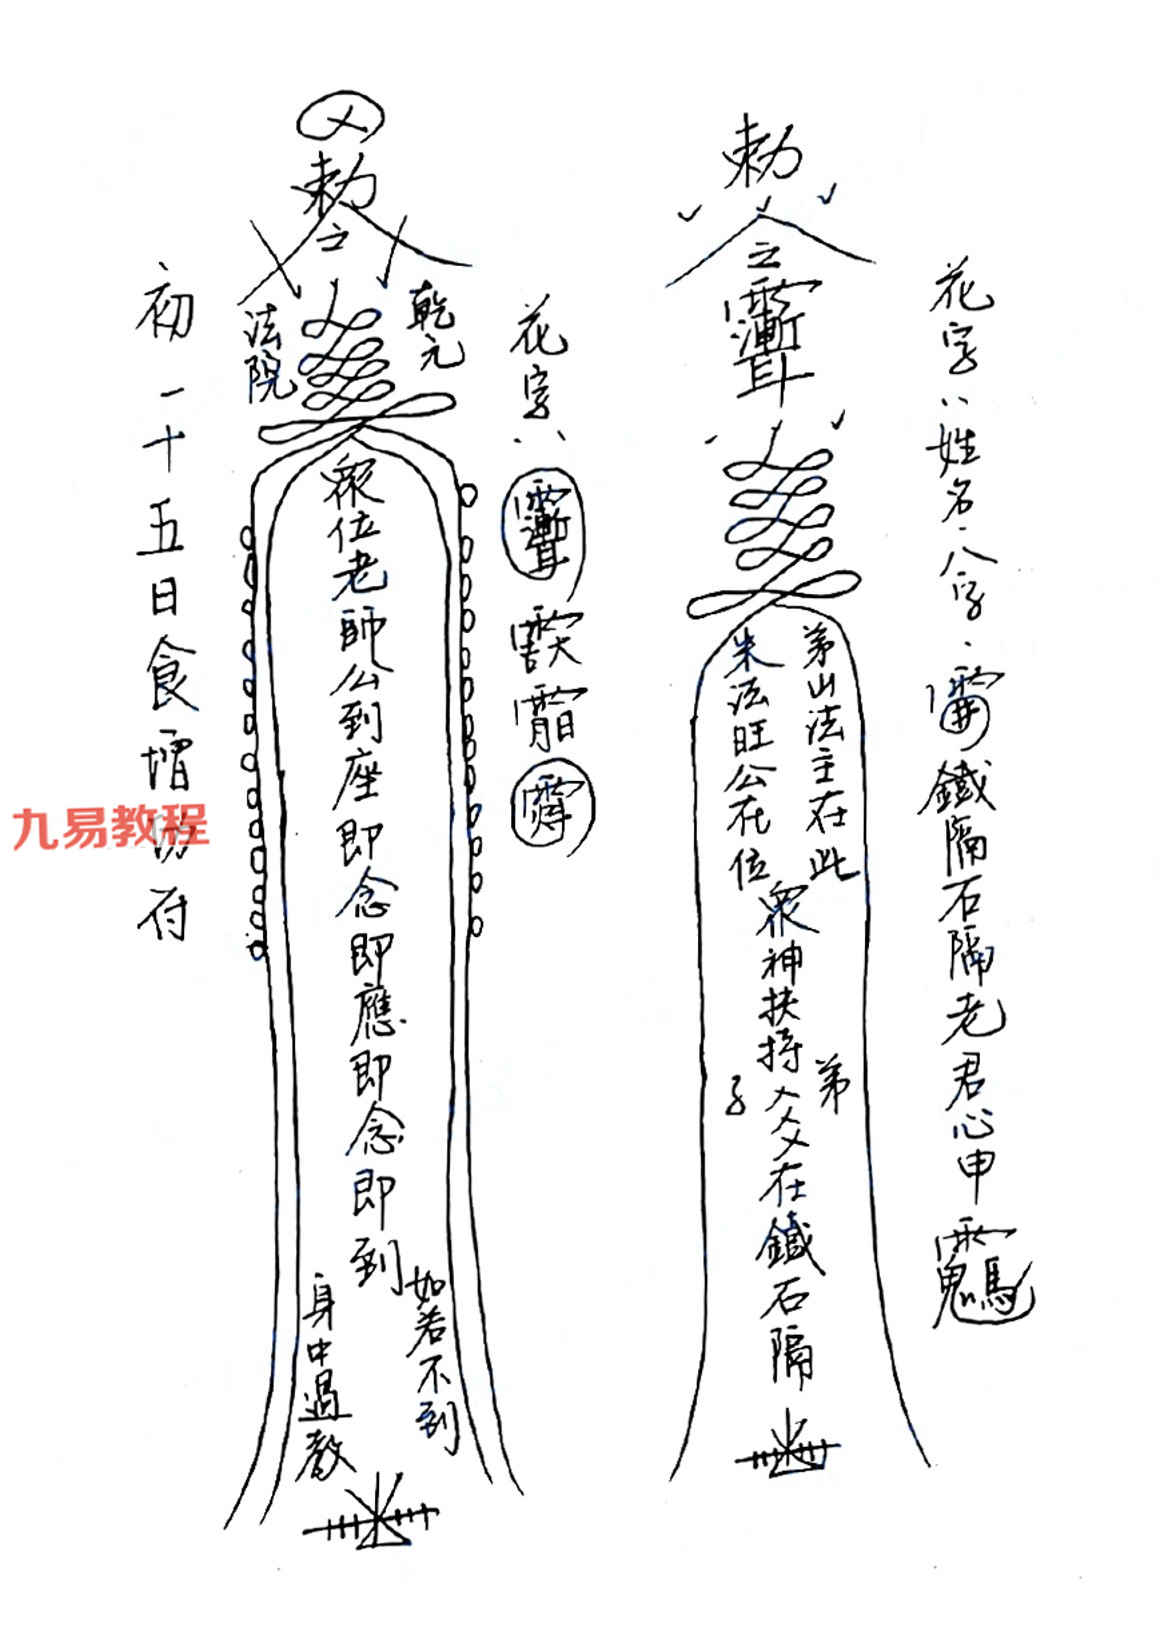 花字：姓名、八字、
鐵隔石隔老君心申
勅
之
茅山法主在此
朱法旺公在位
眾神扶持
弟
子
在鐵石隔
花字：
勅
之
乾元
法院
眾位老師公到座即念即應即念即到
如若不到
身中過教
初一十五日食
符
九易教程